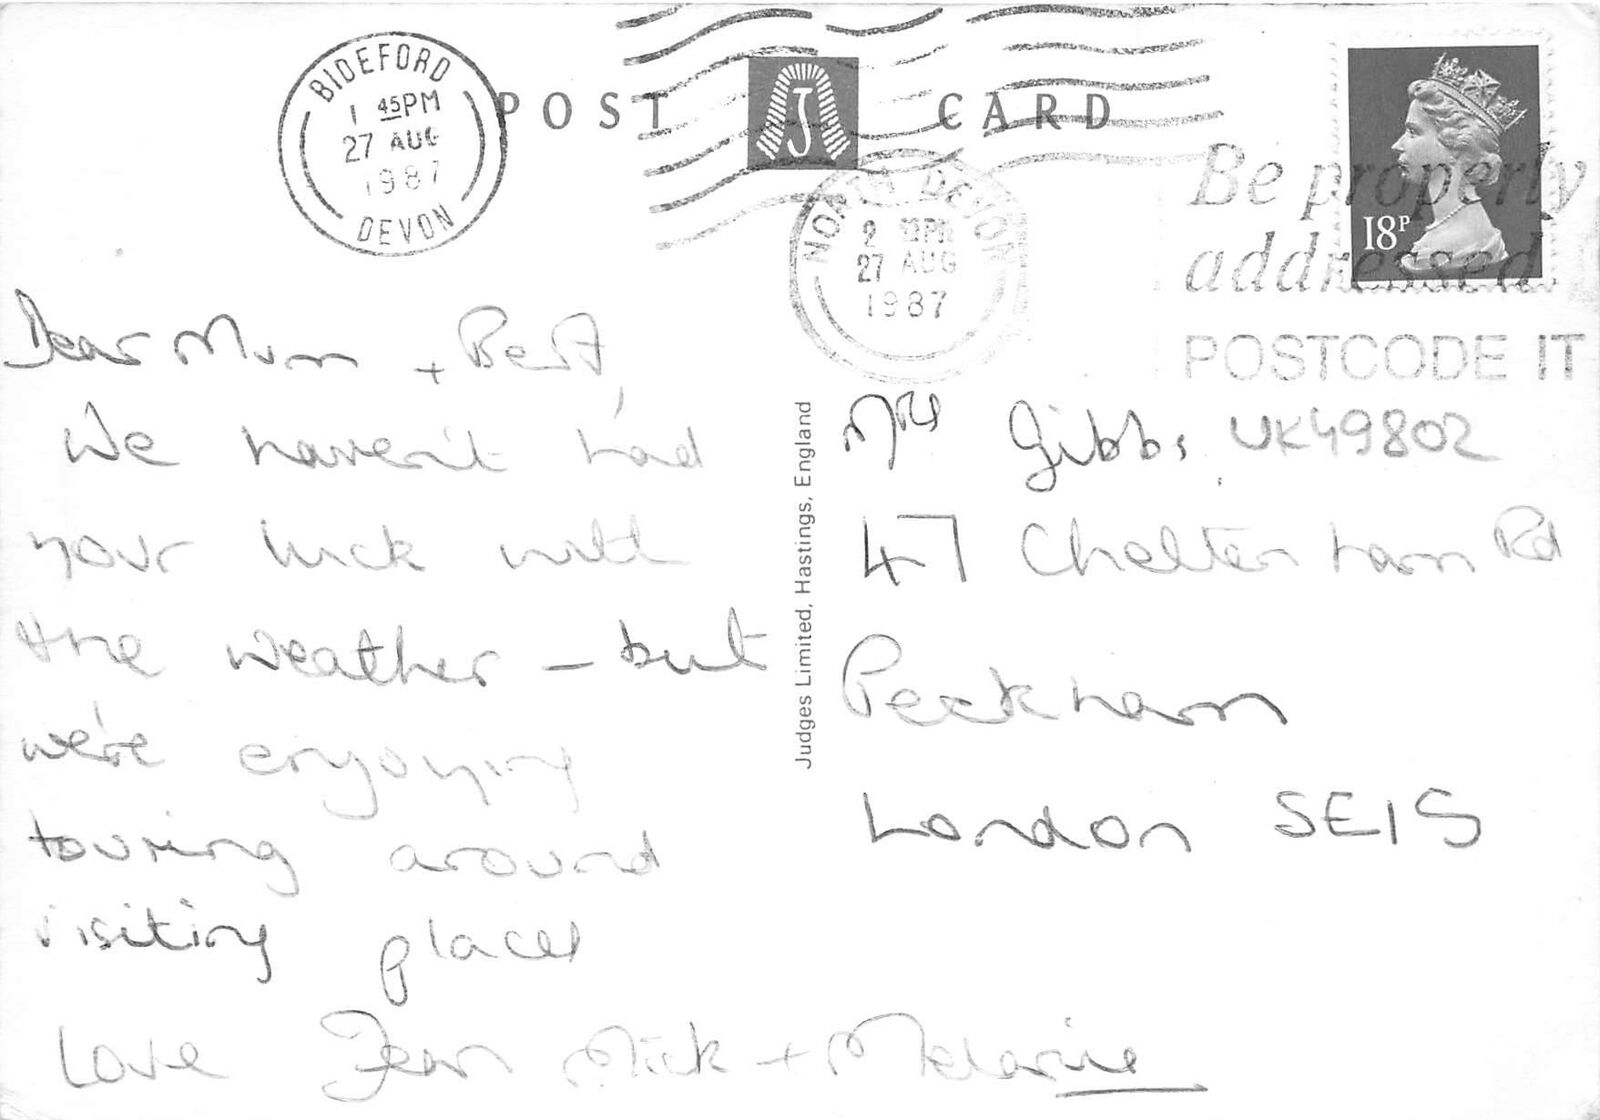 BIDEFORD
1 45PM
27 AUG
1987
DEVON
POST J CARD
NORTH DEVON
2 PM
27 AUG
1987
Be properly
addressed
POSTCODE IT
18P
Dear Mum + Bert,
We haven't had
your luck with
the weather – but
we're enjoying
touring around
visiting places
Love Jean Mick + Melanie
Judges Limited, Hastings, England
Mrs Gibbs. UK49802
47 Cheltenham Rd
Peckham
London SE15